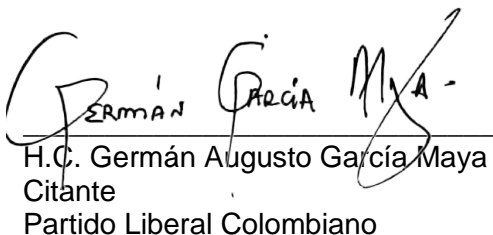 GERMÁN GARCÍA MYA-
H.C. Germán Augusto García Maya
Citante
Partido Liberal Colombiano